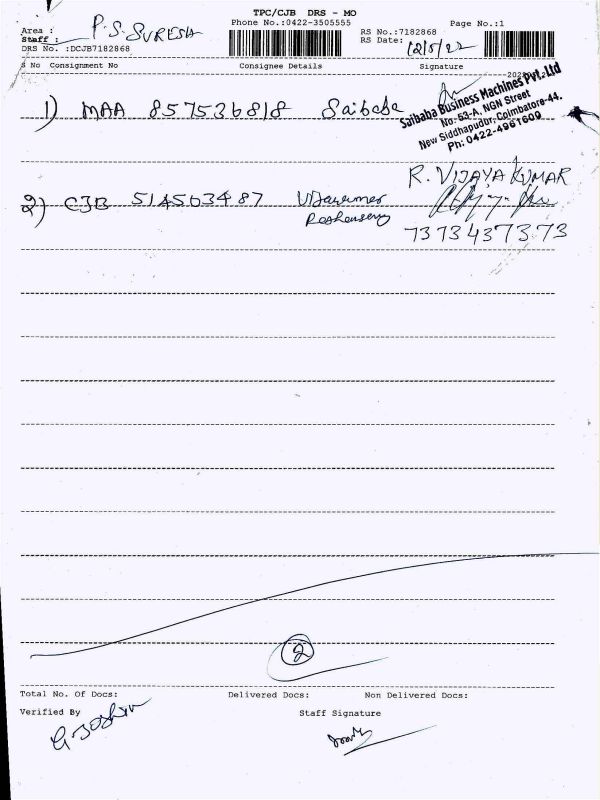 TPC/CJB DRS - MO
Phone No.:0422-3505555
Page No.:1
Area :
Staff : P.S. SURESH
DRS No. :DCJB7182868
RS No.:7182868
RS Date: 12/5/22
S No Consignment No Consignee Details Signature
1) MAA 857536818 Saibaba
Saibaba Business Machines Pvt. Ltd
No: 53-A, NGN Street
New Siddhapudur, Coimbatore-44.
Ph: 0422-4961609
R. VIJAYA KUMAR
2) CJB 514563487
7373437373
2
Total No. Of Docs: Delivered Docs: Non Delivered Docs:
Verified By Staff Signature